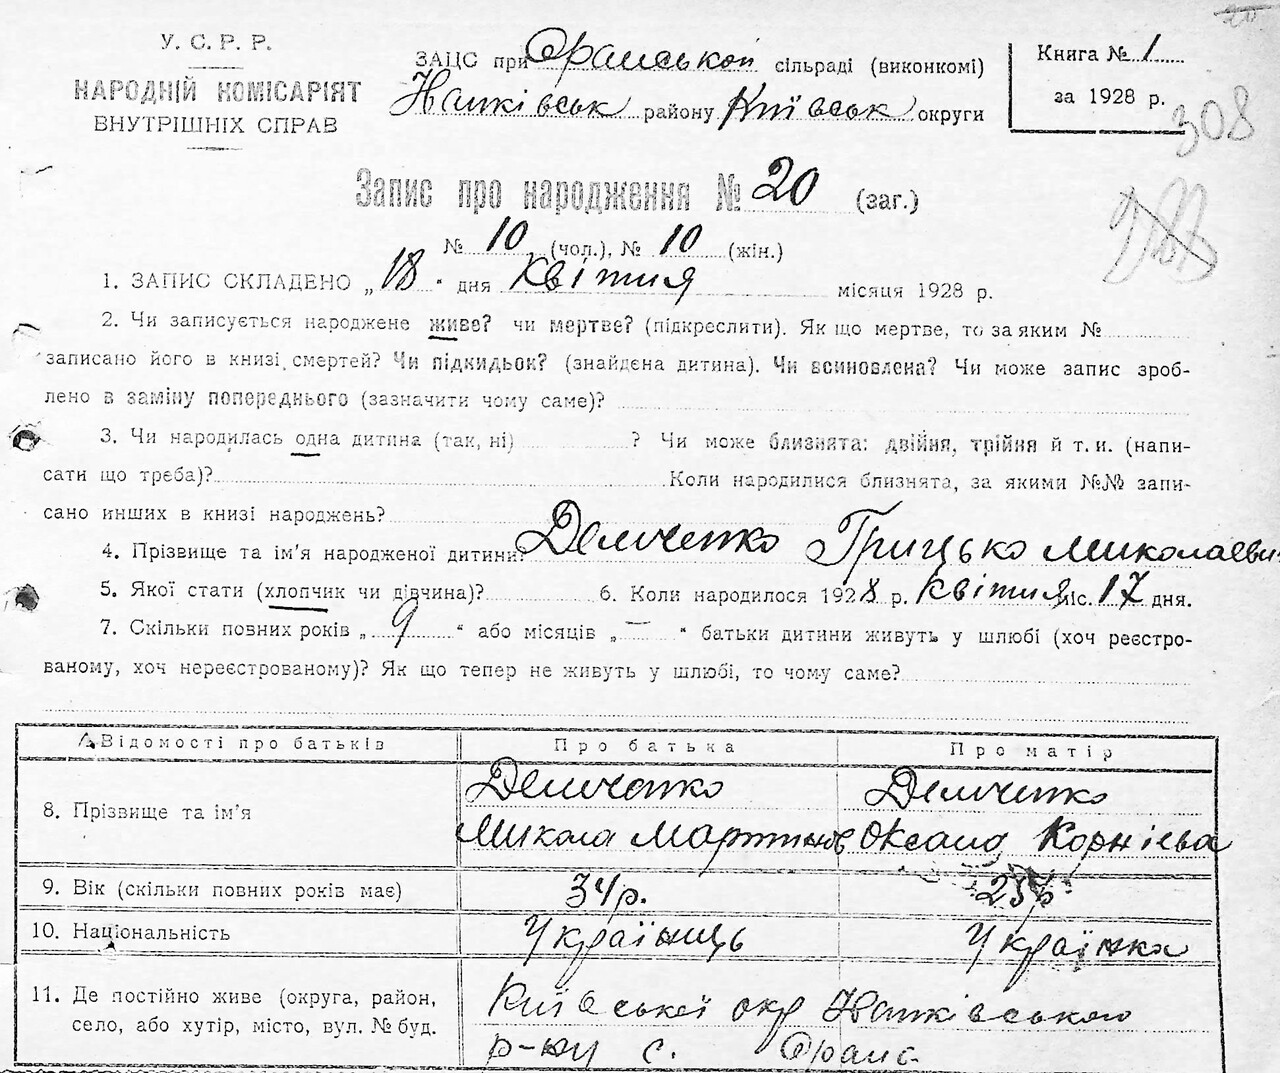 20
У. С. Р. Р.
НАРОДНІЙ КОМІСАРІЯТ
ВНУТРІШНІХ СПРАВ
ЗАЦС при Оранської сільраді (виконкомі)
Напківськ району Київськ округи
Книга № 1
за 1928 р.
308
Запис про народження № 20 (заг.)
№ 10 (чол.), № 10 (жін.)
1. ЗАПИС СКЛАДЕНО „18“ дня квітня місяця 1928 р.
2. Чи записується народжене живе? чи мертве? (підкреслити). Як що мертве, то за яким №
записано його в книзі смертей? Чи підкидьок? (знайдена дитина). Чи всиновлена? Чи може запис зроб-
лено в заміну попереднього (зазначити чому саме)?
3. Чи народилась одна дитина (так, ні) ? Чи може близнята: двійня, трійня й т. и. (напи-
сати що треба)? Коли народилися близнята, за якими №№ запи-
сано инших в книзі народжень?
4. Прізвище та ім'я народженої дитини? Демченко Грицько Миколаєвич
5. Якої стати (хлопчик чи дівчина)? 6. Коли народилося 1928 р. квітня міс. 17 дня.
7. Скільки повних років „9“ або місяців „—“ батьки дитини живуть у шлюбі (хоч реєстро-
ваному, хоч нереєстрованому)? Як що тепер не живуть у шлюбі, то чому саме?
Відомості про батьків Про батька Про матір
8. Прізвище та ім'я Демченко Микола Мартинов Демченко Оксана Корнієва
9. Вік (скільки повних років має) 34р. 25р
10. Національність Українець Українка
11. Де постійно живе (округа, район,
село, або хутір, місто, вул. № буд.
Київської окр Напківського
р-ну с. Оране